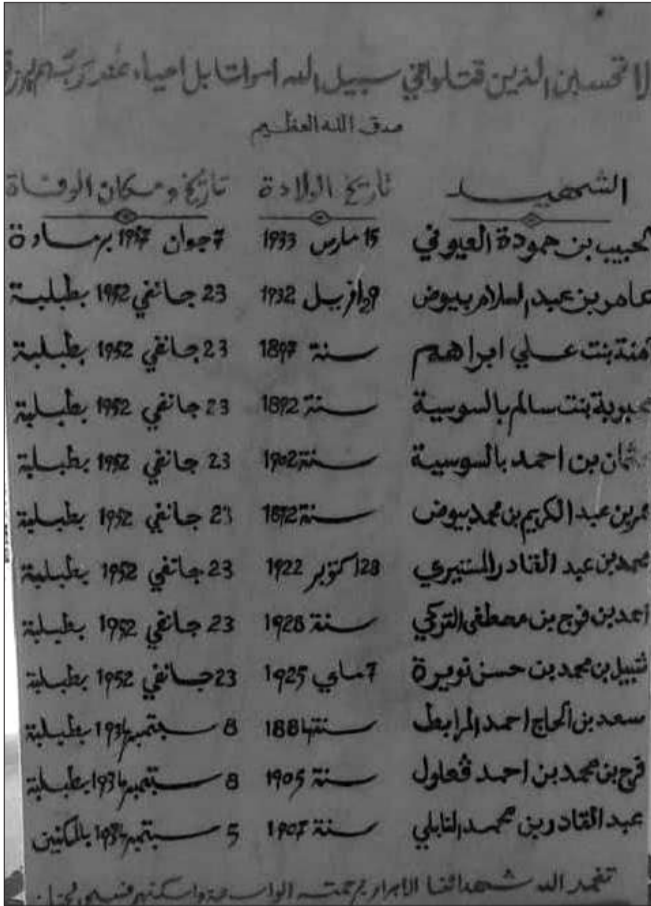 لا تحسبن الذين قتلوا في سبيل الله امواتا بل احياء عند ربهم يرزقو
صدق الله العظيم
الشهيد تاريخ الولادة تاريخ ومكان الوفاة
الحبيب بن حمودة العيوني 15 مارس 1933 7 جوان 1957 برمادة
عامر بن عبد السلام بيوض 29 افريل 1932 23 جانفي 1952 بطبلبة
منة بنت علي ابراهم سنة 1897 23 جانفي 1952 بطبلبة
محبوبة بنت سالم بالسوسية سنة 1892 23 جانفي 1952 بطبلبة
عثمان بن احمد بالسوسية سنة 1902 23 جانفي 1952 بطبلبة
عمر بن عبد الكريم بن محمد بيوض سنة 1892 23 جانفي 1952 بطبلبة
محمد بن عبد القادر المستيري 28 اكتوبر 1922 23 جانفي 1952 بطبلبة
احمد بن فرج بن مصطفى التركي سنة 1928 23 جانفي 1952 بطبلبة
نبيل بن محمد بن حسن نويرة 7 ماي 1925 23 جانفي 1952 بطبلبة
سعد بن الحاج احمد المرابط سنة 1884 8 سبتمبر 1934 بطبلبة
فرج بن محمد بن احمد ڨعلول سنة 1905 8 سبتمبر 1934 بطبلبة
عبد القادر بن محمد النابلي سنة 1907 5 سبتمبر 1934 بالمكنين
تغمد الله شهدائنا الابرار برحمته الواسعة واسكنهم فسيح